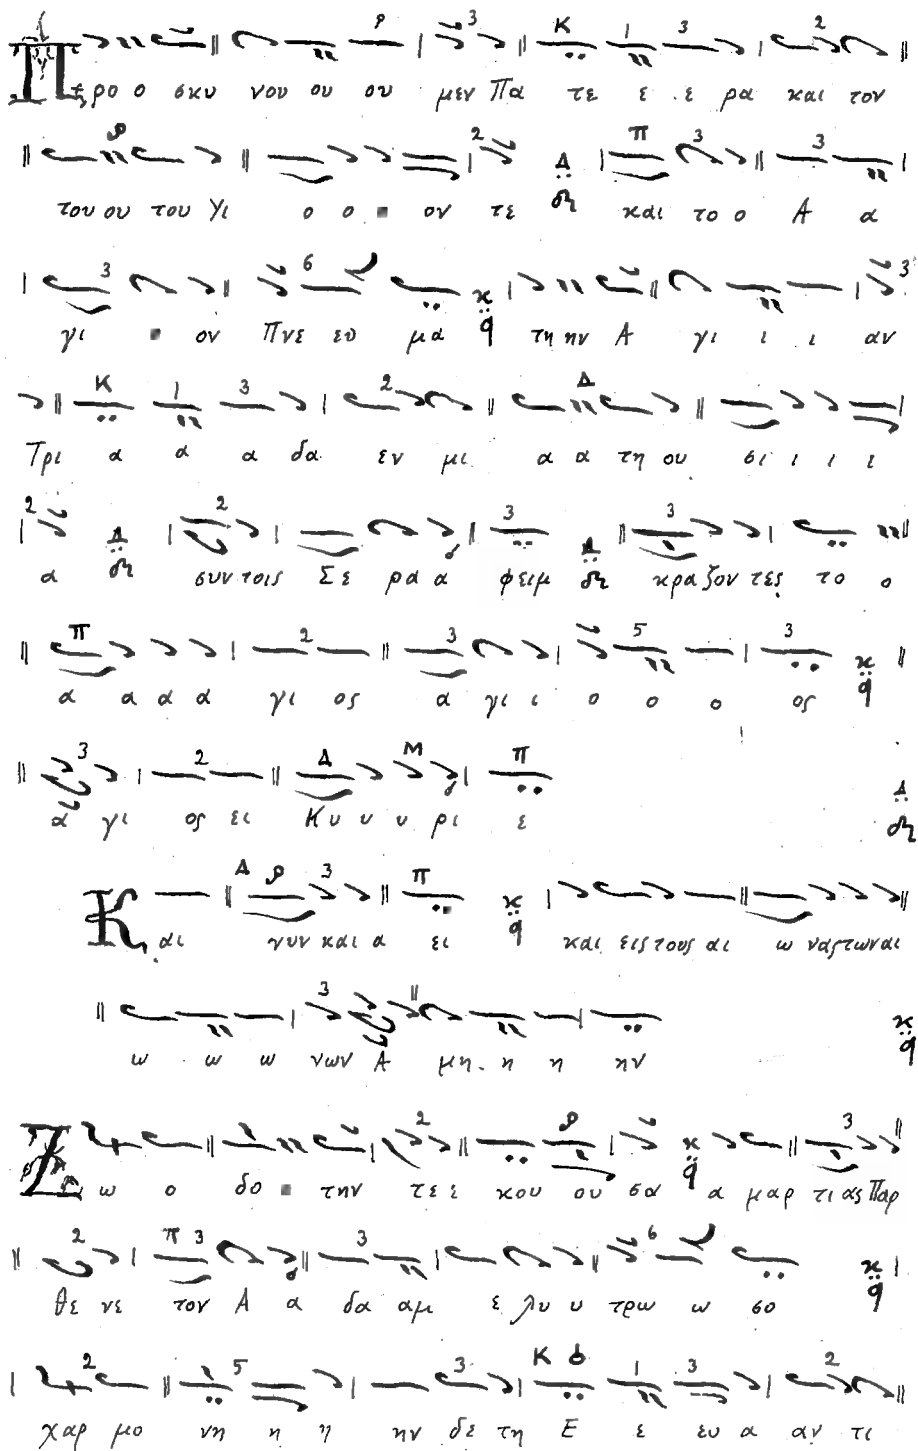 Προ ο σκυ νου ου ου μεν Πα τε ε ε ρα και τον
του ου του Υι ο ο ον τε και το ο Α α
γι ον Πνε ευ μα τη ην Α γι ι ι αν
Τρι α α α δα εν μι α α τη ου σι ι ι ι
α συν τοις Σε ρα α φειμ κρα ζον τες το ο
α α α α γι ος α γι ι ο ο ο ος
α γι ος ει Κυ υ υ ρι ε
Και νυν και α ει και εις τους αι ω νας των αι
ω ω ω νων Α μη η η ην
Ζω ο δο την τε ε κου ου σα α μαρ τι ας Παρ
θε νε τον Α α δα αμ ε λυ υ τρω ω σο
χαρ μο νη η η ην δε τη Ε ε ευ α αν τι